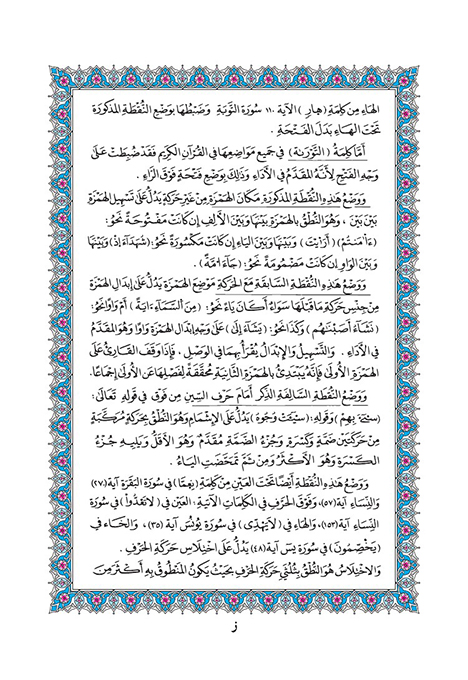 الهَاءِ مِن كلِمَةِ (هِارٍ) الآيَة ١١٠ سُورَة التَّوبَة وَضَبْطُهَا بِوَضْعِ النُّقْطَةِ المَذكُورَةِ
تَحْتَ الهَاءِ بَدَلَ الفَتْحَةِ .
أَمَّا كلِمَةُ (التَّوْرَىٰة) في جَمِيعِ مَوَاضِعِهَا فِي القُرْآنِ الكَرِيمِ فَقَدْ ضُبِطَتْ عَلَىٰ
وَجْهِ الفَتْحِ لِأَنَّهُ المُقَدَّمُ في الأَدَاءِ وَذَلِكَ بِوَضْعِ فَتْحَةٍ فَوْقَ الرَّاءِ .
وَوَضْعُ هَذِهِ النُّقْطَةِ المَذكُورَةِ مَكَانَ الهَمْزَةِ مِن غَيْرِ حَرَكَةٍ يَدُلُّ عَلَىٰ تَسْهِيلِ الهَمْزَةِ
بَيْنَ بَيْنَ ، وَهُوَ النُّطْقُ بِالهَمْزَةِ بَيْنَهَا وَبَيْنَ الأَلِفِ إِن كَانَتْ مَفْتُوحَةً نَحْوُ :
(ءَا۬مَنتُم) (أَرَٰيْتَ) وَبَيْنَهَا وَبَيْنَ اليَاءِ إِن كَانَتْ مَكْسُورَةً نَحْوُ : (شُهَدَآءَ ا۪ذْ) وَبَيْنَهَا
وَبَينَ الوَاوِ إِن كَانَتْ مَضْمُومَةً نَحْوُ : (جَآءَ ا۟مَّةً) .
وَوَضْعُ هَذِهِ النُّقْطَةِ السَّابِقَةِ مَعَ الحَرَكَةِ مَوْضِعَ الهَمْزَةِ يَدُلُّ عَلَىٰ إِبدَالِ الهَمْزَةِ
مِن جِنْسِ حَرَكَةِ مَا قَبْلَهَا سَوَاءٌ أَكَانَ يَاءً نَحْوُ : (مِنَ اَ۬لسَّمَآءِ يَ۬ايَة) أَمْ وَاوًا نَحْوُ :
(نَشَآءُ وَ۬صَبْنَٰهُم) وَكَذَا نَحْوُ : (يَشَآءُ اِلَىٰ) عَلَىٰ وَجْهِ إِبدَالِ الهَمْزَةِ وَاوًا وَهُوَ المُقَدَّمُ
في الأَدَاءِ . وَالتَّسْهِيلُ وَالإِبْدَالُ يُقْرَأُ بِهِمَا فِي الوَصْلِ ، فَإِذَا وَقَفَ القَارِئُ عَلَىٰ
الهَمْزَةِ الأُولَىٰ فَإِنَّهُ يَبْتَدِئُ بِالهَمْزَةِ الثَّانِيَةِ مُحَقَّقَةً لِفَصْلِهَا عَنِ الأُولَىٰ إِجْمَاعًا .
وَوَضْعُ النُّقْطَةِ السَّالِفَةِ الذِّكْرِ أَمَامَ حَرْفِ السِّينِ مِن فَوْقُ في قَولِهِ تَعَالَىٰ :
(سِيٓءَ بِهِمْ) وَقَولِهِ : (سِيٓـَٔتْ وُجُوهُ) يَدُلُّ عَلَىٰ الإِشْمَامِ وَهُوَ النُّطْقُ بِحَرَكَةٍ مُرَكَّبَةٍ
مِنْ حَرَكَتَيْنِ ضَمَّةٍ وَكَسْرَةٍ، وَجُزْءُ الضَّمَّةِ مُقَدَّمٌ وَهُوَ الأَقَلُّ وَيَلِيهِ جُزْءُ
الكَسْرَةِ وَهُوَ الأَكْثَرُ وَمِنْ ثَمَّ تَمَحَّضَتِ اليَاءُ .
وَوَضْعُ هَذِهِ النُّقْطَةِ أَيْضًا تَحْتَ العَيْنِ مِنْ كلِمَةِ (نِعِمَّا) في سُورَةِ البَقَرَةِ آية (٢٧٠)
وَالنِّسَاءِ آية (٥٧)، وَفَوْقَ الحَرْفِ في الكَلِمَاتِ الآتِيَةِ : العَيْنِ في (لَا تَعْدُوا) في سُورَةِ
النِّسَاءِ آية (١٥٣)، وَالهَاءِ في (لَا يَهْدِي) في سُورَةِ يُونُسَ آية (٣٥)، وَالخَاءِ في
(يَخْصِّمُونَ) في سُورَةِ يسٓ آية (٤٨) يَدُلُّ عَلَىٰ اخْتِلَاسِ حَرَكَةِ الحَرْفِ .
وَالاخْتِلَاسُ هُوَ النُّطْقُ بِثُلُثَيْ حَرَكَةِ الحَرْفِ بِحَيْثُ يَكُونُ المَنْطُوقُ بِهِ أَكْثَرَ مِن
ز